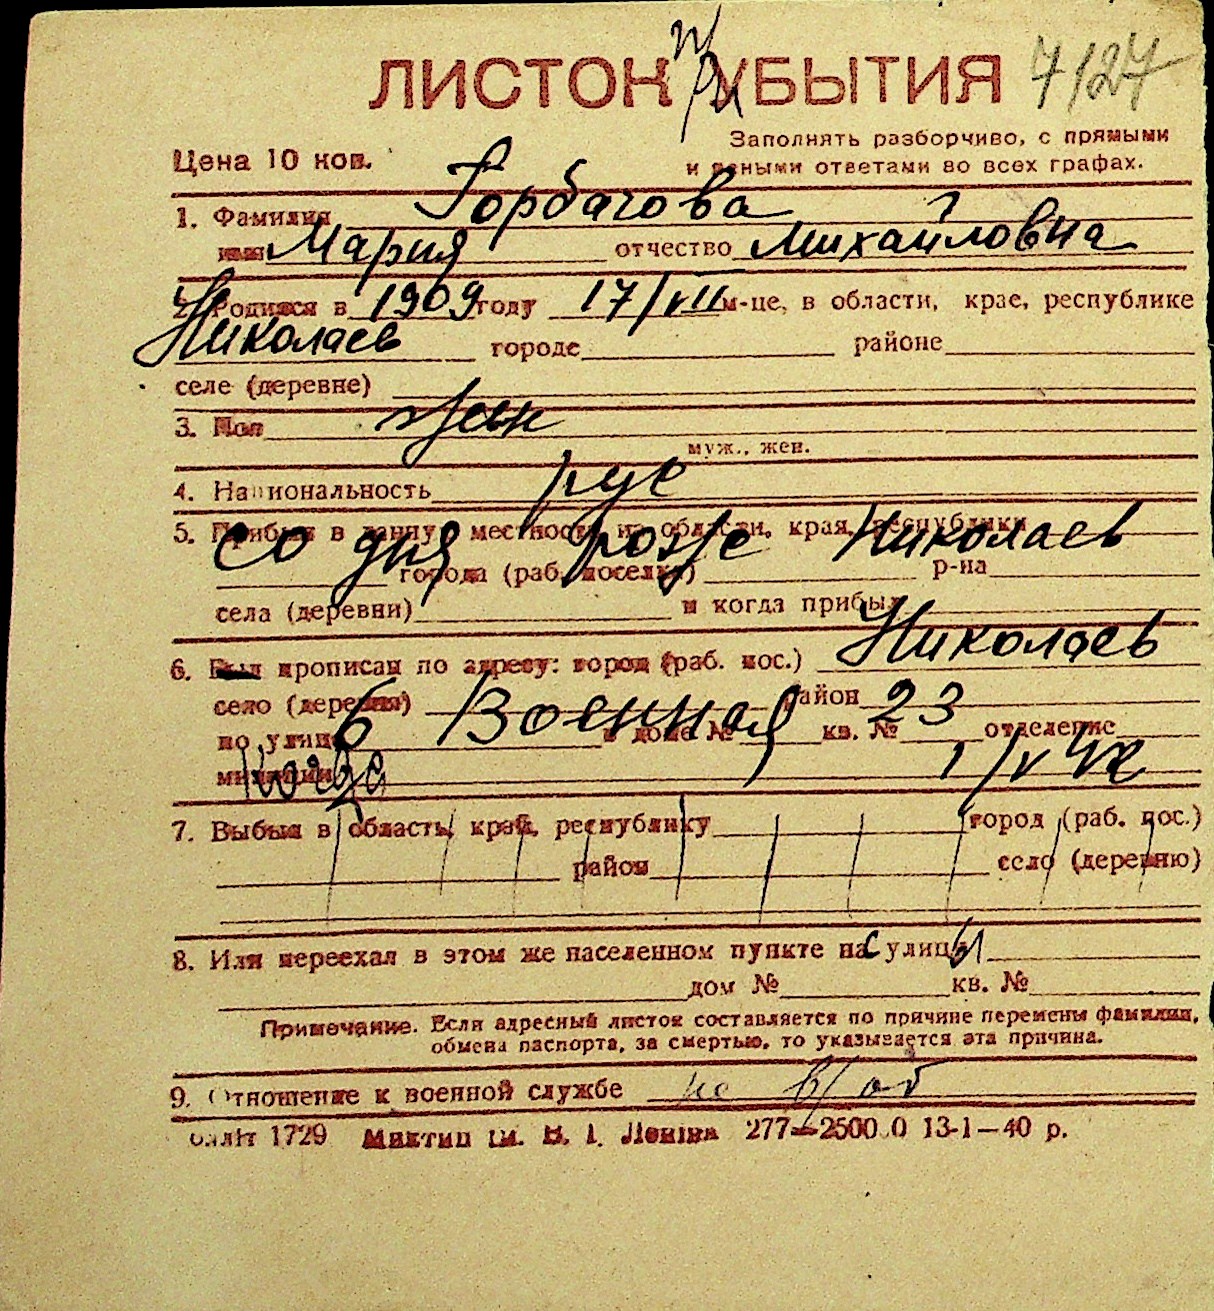 ЛИСТОК УБЫТИЯ
при
7/27
Цена 10 коп.
Заполнять разборчиво, с прямыми
и ясными ответами во всех графах.
1. Фамилия Горбачова
имя Мария отчество Михайловна
2. Родился в 1909 году 17/VII м-це, в области, крае, республике
Николаев городе районе
селе (деревне)
3. Пол жен
муж., жен.
4. Национальность рус
5. Прибыл в данную местность из области, края, республики
со дня рожд Николаев
города (раб. поселка) р-на
села (деревни) и когда прибыл
6. Был прописан по адресу: город (раб. пос.) Николаев
село (деревня) район
по улице 6 Военная в доме № кв. № 23 отделение
милиции когда 1/V 42
7. Выбыл в область, край, республику город (раб. пос.)
район село (деревню)
8. Или переехал в этом же населенном пункте на с улицы
дом № кв. №
Примечание. Если адресный листок составляется по причине перемены фамилии,
обмена паспорта, за смертью, то указывается эта причина.
9. Отношение к военной службе не в/об
1729 Миктип ім. В. І. Леніна 277—2500 0 13-1—40 р.